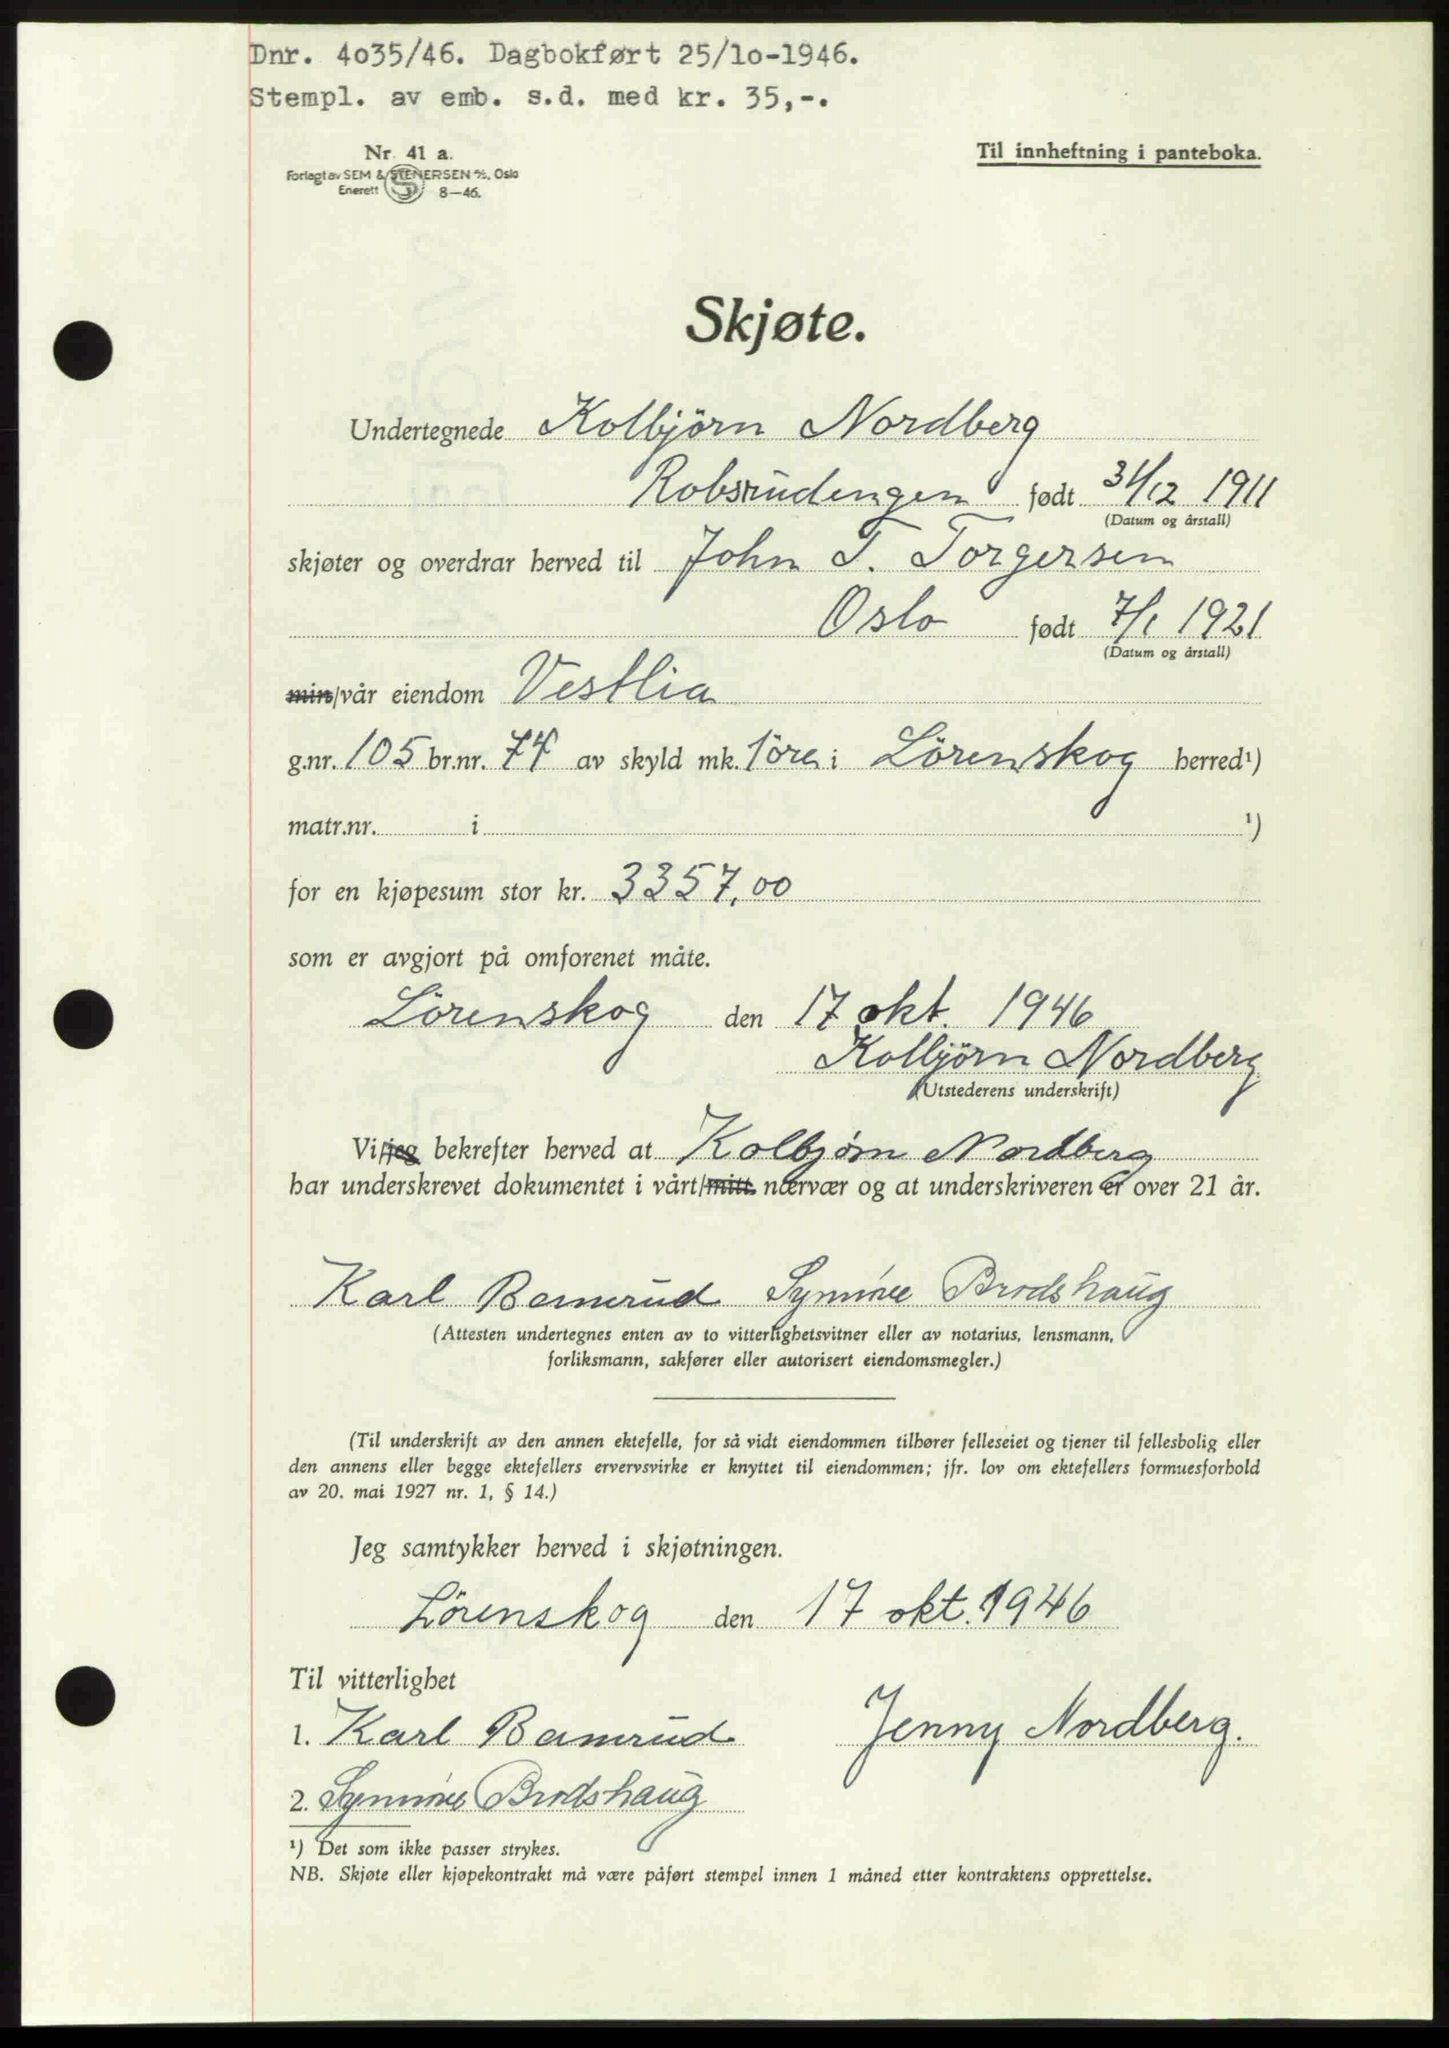 Dnr. 4o35/46. Dagbokført 25/1o-1946.
Stempl. av emb. s.d. med kr. 35,-.
Nr. 41 a.
Til innheftning i panteboka.
Forlagt av SEM & STENERSEN A/S, Oslo
Enerett S 8—46.
Skjøte.
Undertegnede Kolbjörn Nordberg
Robsrudengen født 31/12 1911
(Datum og årstall)
skjøter og overdrar herved til John T. Torgersen
Oslo født 7/1 1921
(Datum og årstall)
min/vår eiendom Vestlia
g.nr. 105 br.nr. 74 av skyld mk. 1öre i Lörenskog herred¹)
matr.nr. i ¹)
for en kjøpesum stor kr. 3357,00
som er avgjort på omforenet måte.
Lörenskog den 17 okt. 1946
Kolbjörn Nordberg
(Utstederens underskrift)
Vi/jeg bekrefter herved at Kolbjørn Nordberg
har underskrevet dokumentet i vårt/mitt nærvær og at underskriveren er over 21 år.
Karl Bamrud Synnöve Brodshaug
(Attesten undertegnes enten av to vitterlighetsvitner eller av notarius, lensmann,
forliksmann, sakfører eller autorisert eiendomsmegler.)
(Til underskrift av den annen ektefelle, for så vidt eiendommen tilhører felleseiet og tjener til fellesbolig eller
den annens eller begge ektefellers ervervsvirke er knyttet til eiendommen; jfr. lov om ektefellers formuesforhold
av 20. mai 1927 nr. 1, § 14.)
Jeg samtykker herved i skjøtningen.
Lörenskog den 17 okt. 1946
Til vitterlighet
1. Karl Bamrud Jenny Nordberg.
2. Synnöve Brodshaug
¹) Det som ikke passer strykes.
NB. Skjøte eller kjøpekontrakt må være påført stempel innen 1 måned etter kontraktens opprettelse.